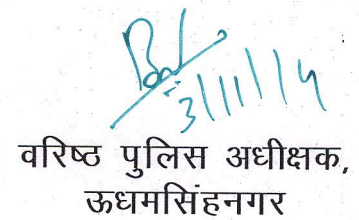 3/11/14
वरिष्ठ पुलिस अधीक्षक,
ऊधमसिंहनगर